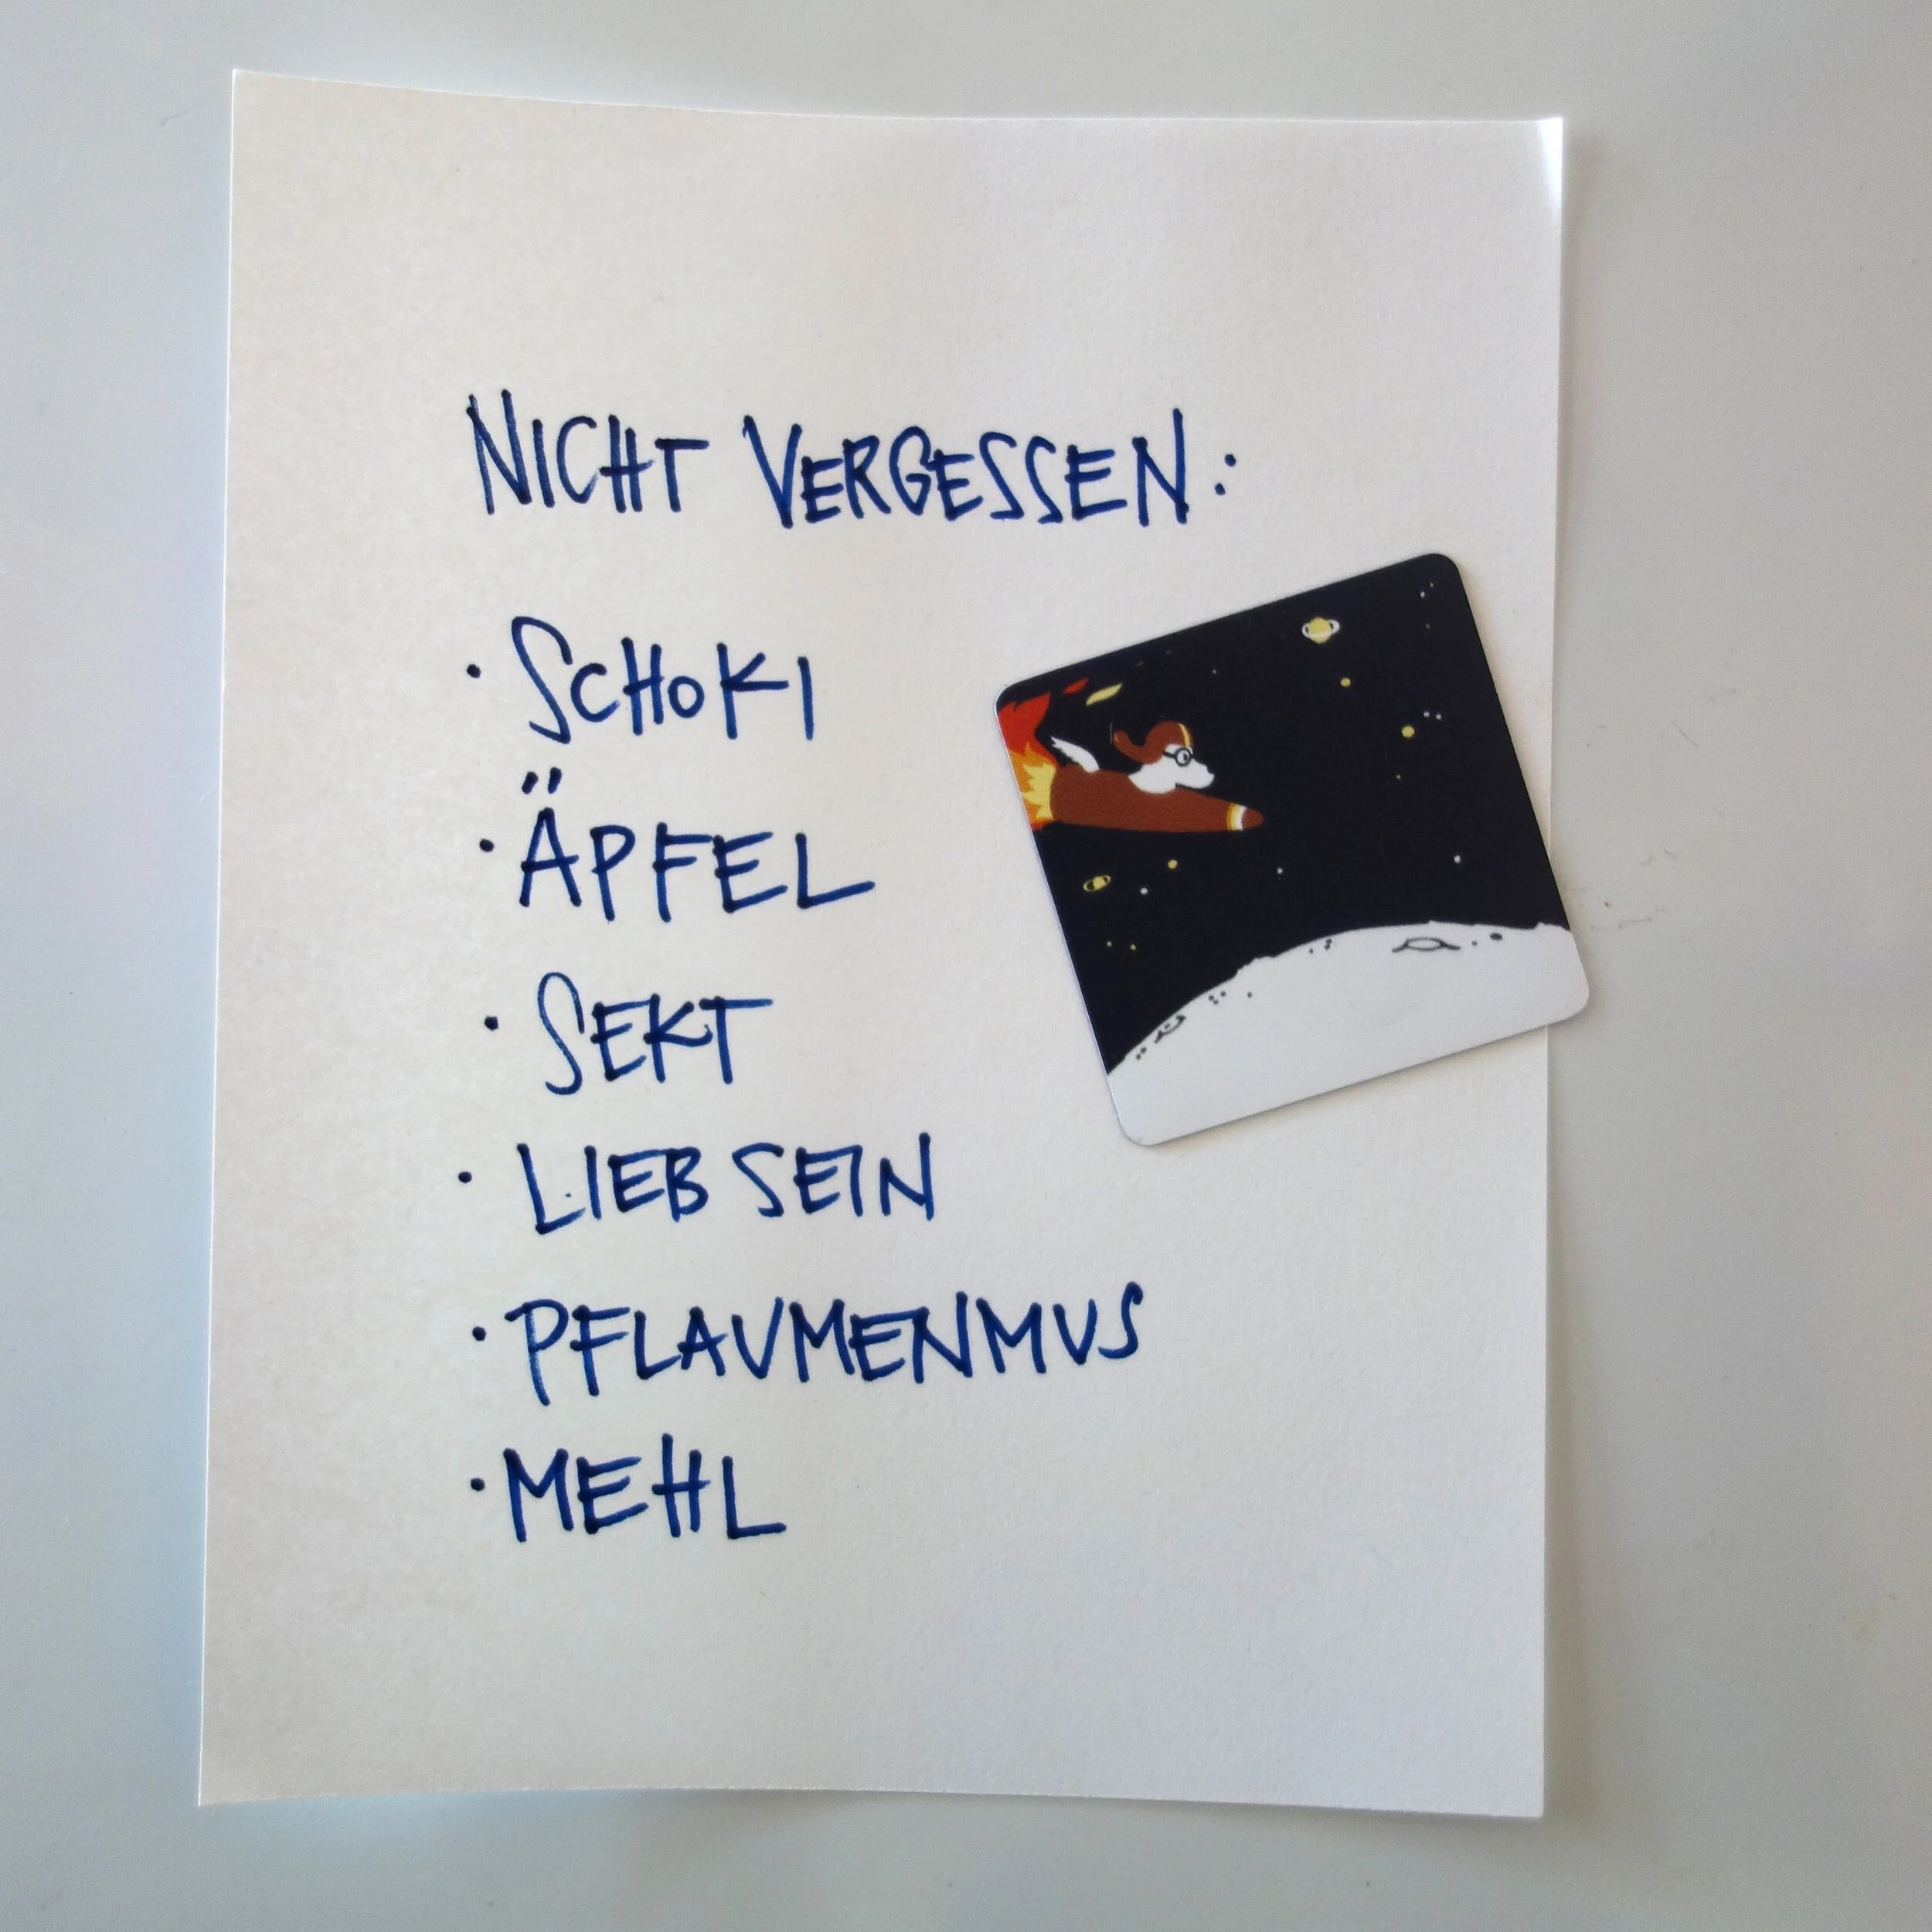 NICHT VERGESSEN:
· SCHOKI
· ÄPFEL
· SEKT
· LIEB SEIN
· PFLAUMENMUS
· MEHL